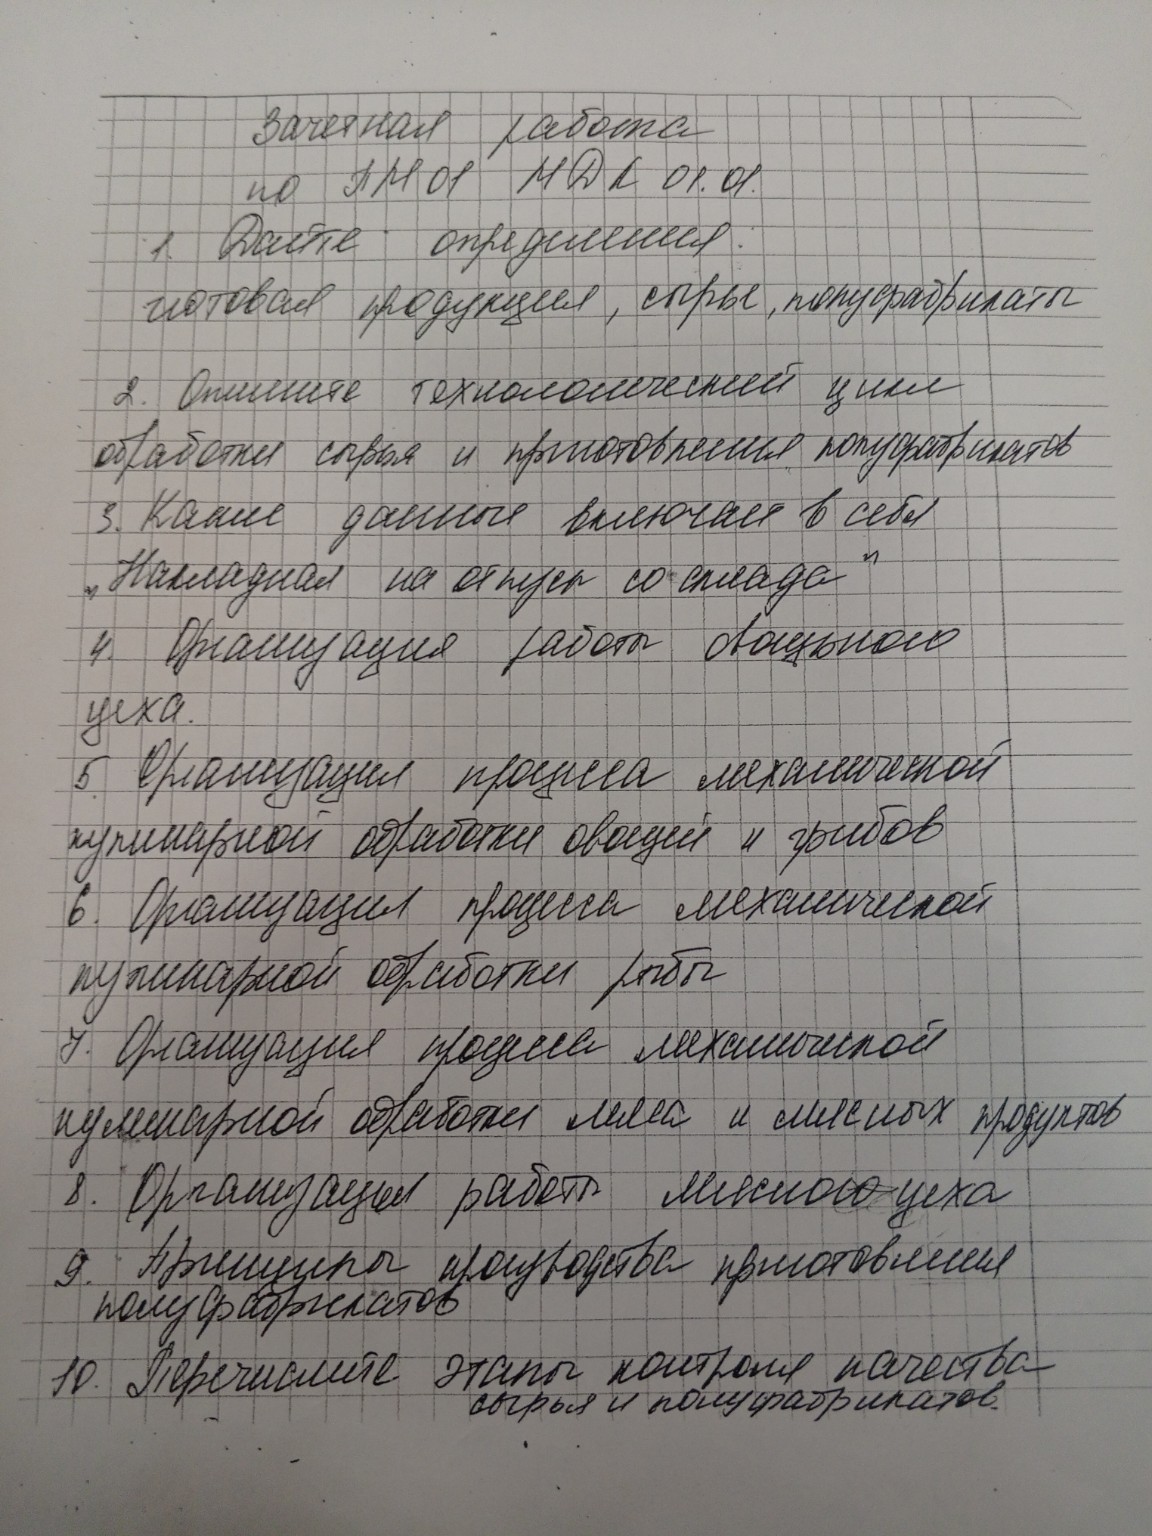 Зачетная работа
по ПМ 01 МДК 01.01.
1. Дайте определения:
готовая продукция, сырье, полуфабрикаты
2. Опишите технологический цикл
обработки сырья и приготовления полуфабрикатов
3. Какие данные включает в себя
„Накладная на отпуск со склада"
4. Организация работы овощного
цеха.
5. Организация процесса механической
кулинарной обработки овощей и грибов
6. Организация процесса механической
кулинарной обработки рыбы
7. Организация процесса механической
кулинарной обработки мяса и мясных продуктов
8. Организация работы мясного цеха
9. Принципы производства приготовления
полуфабрикатов
10. Перечислите этапы контроля качества
сырья и полуфабрикатов.